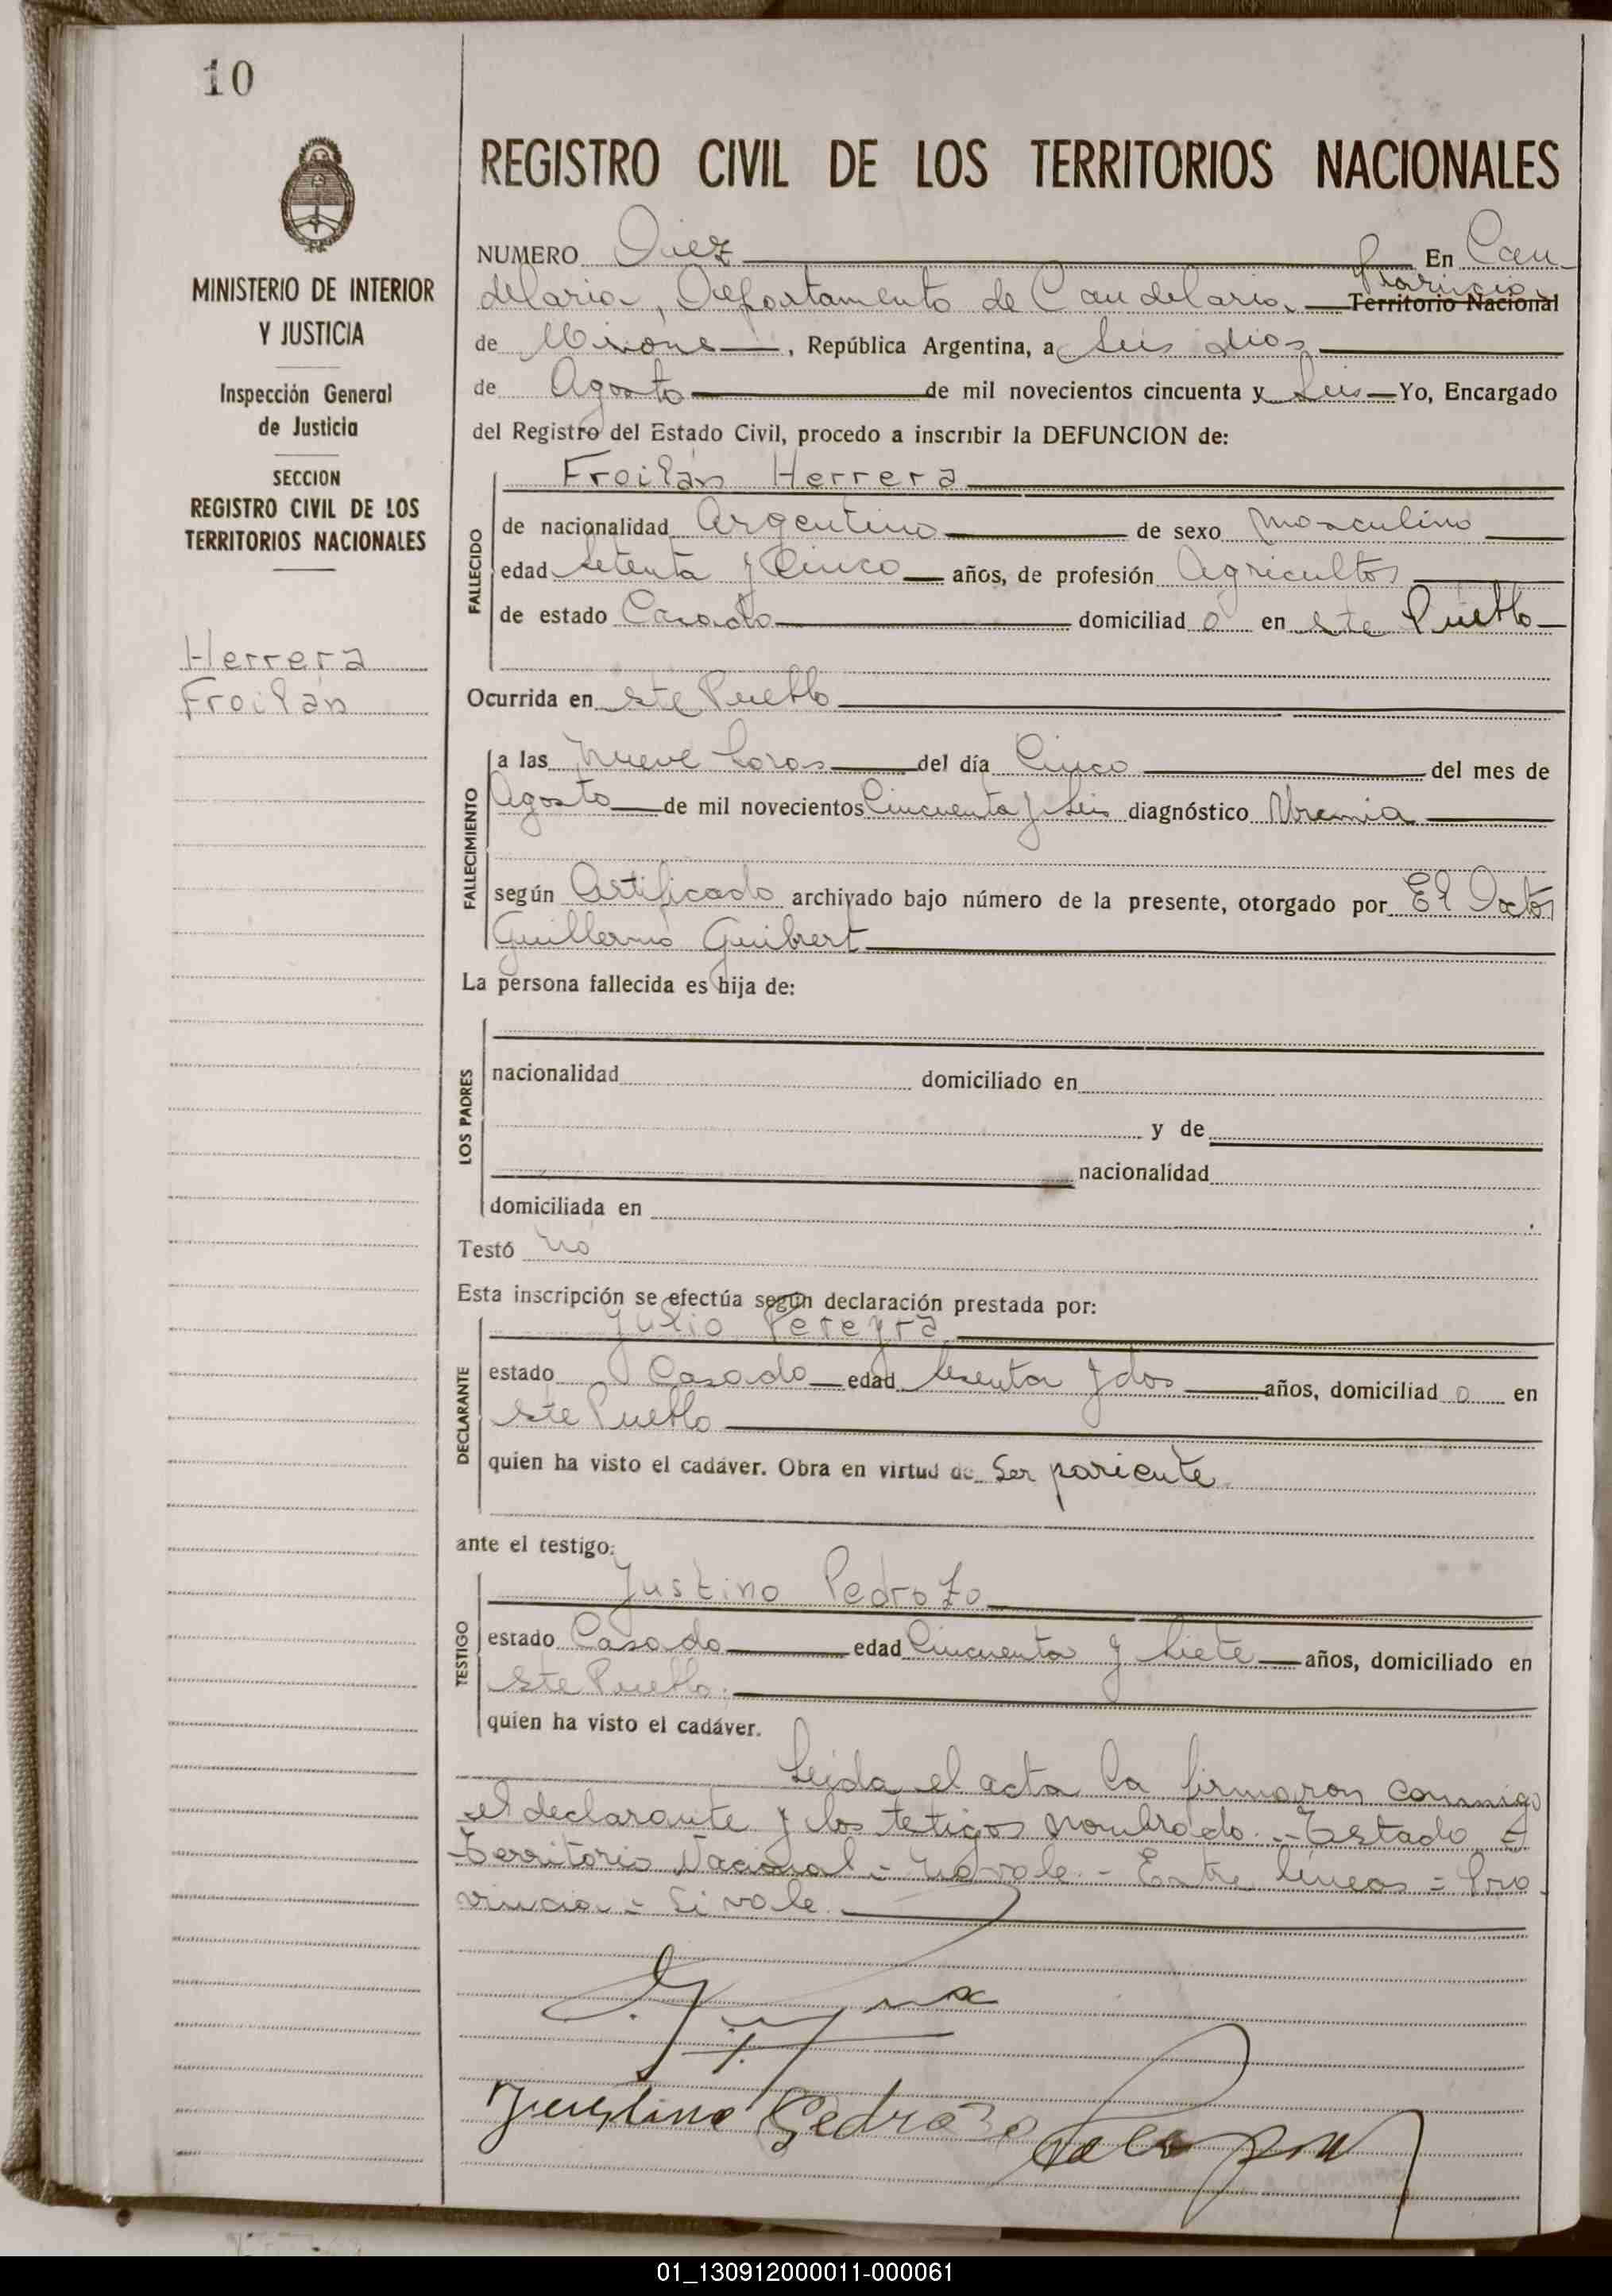 10
MINISTERIO DE INTERIOR
Y JUSTICIA
Inspección General
de Justicia
SECCION
REGISTRO CIVIL DE LOS
TERRITORIOS NACIONALES
Herrera
Froilán
REGISTRO CIVIL DE LOS TERRITORIOS NACIONALES
NUMERO Diez En Can
delaria, Departamento de Candelaria Provincia Territorio Nacional
de Misiones, República Argentina, a seis dias
de Agosto de mil novecientos cincuenta y seis Yo, Encargado
del Registro del Estado Civil, procedo a inscribir la DEFUNCION de:
FALLECIDO
Froilán Herrera
de nacionalidad Argentino de sexo masculino
edad setenta y Cinco años, de profesión Agricultor
de estado Casado domiciliad o en este Pueblo
Ocurrida en este Pueblo
FALLECIMIENTO
a las nueve horas del día Cinco del mes de
Agosto de mil novecientos Cincuenta y seis diagnóstico Uremia
según Certificado archivado bajo número de la presente, otorgado por El Doctor
Guillermo Guibert
La persona fallecida es hija de:
LOS PADRES
nacionalidad domiciliado en
y de
nacionalidad
domiciliada en
Testó no
Esta inscripción se efectúa según declaración prestada por:
DECLARANTE
Julio Pereyra
estado Casado edad sesenta y dos años, domiciliad o en
este Pueblo
quien ha visto el cadáver. Obra en virtud de ser pariente
ante el testigo:
TESTIGO
Justino Pedrozo
estado Casado edad Cincuenta y siete años, domiciliado en
este Pueblo.
quien ha visto el cadáver.
Leida el acta la firmaron conmigo
el declarante y los testigos nombrado.-Testado =
Territorio Nacional = no vale.- Entre lineas = Pro
vincia = Si vale.
Justino Pedrozo
01_130912000011-000061